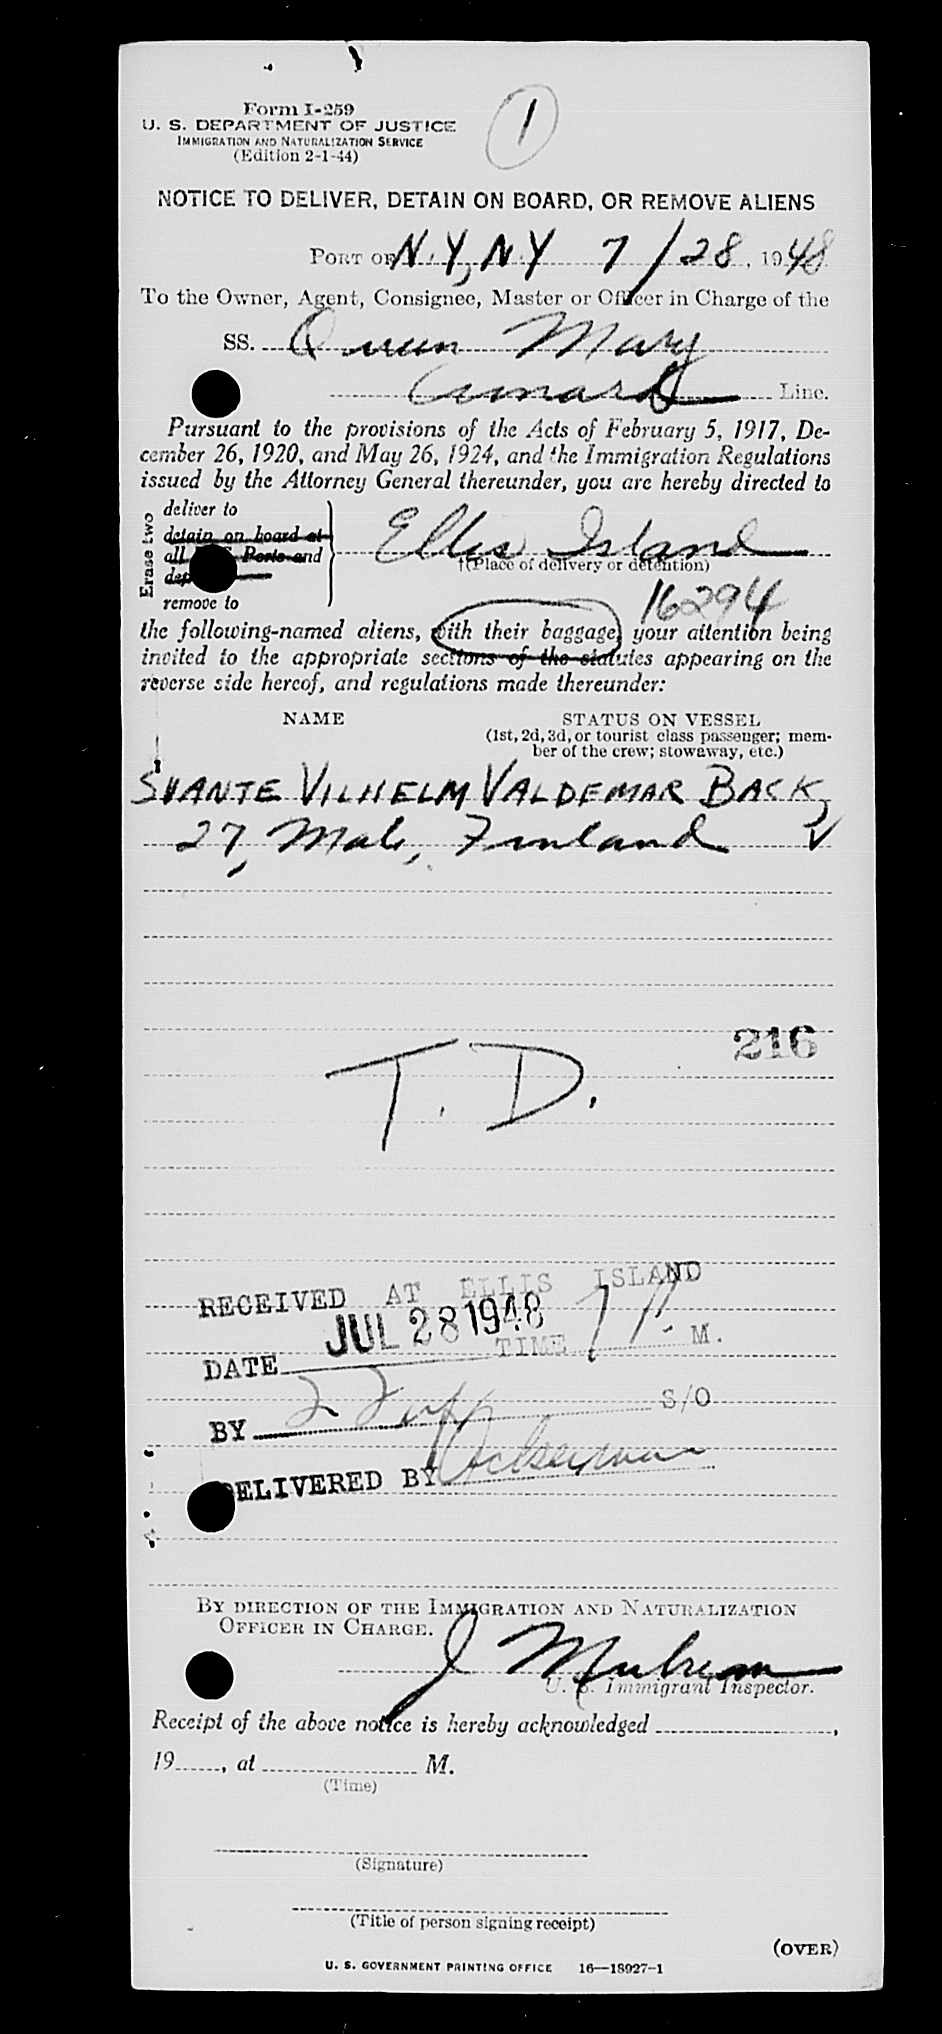 Form I-259
1
U. S. DEPARTMENT OF JUSTICE
IMMIGRATION AND NATURALIZATION SERVICE
(Edition 2-1-44)
NOTICE TO DELIVER, DETAIN ON BOARD, OR REMOVE ALIENS
PORT OF N.Y., N.Y 7/28, 1948
To the Owner, Agent, Consignee, Master or Officer in Charge of the
SS. Queen Mary
Cunard Line.
Pursuant to the provisions of the Acts of February 5, 1917, De-
cember 26, 1920, and May 26, 1924, and the Immigration Regulations
issued by the Attorney General thereunder, you are hereby directed to
Erase two
deliver to
detain on board at
all Ports and
remove to
Ellis Island
†(Place of delivery or detention)
16294
the following-named aliens, with their baggage, your attention being
invited to the appropriate sections of the statutes appearing on the
reverse side hereof, and regulations made thereunder:
NAME STATUS ON VESSEL
(1st, 2d, 3d, or tourist class passenger; mem-
ber of the crew; stowaway, etc.)
SVANTE VILHELM VALDEMAR BACK,
27, Male, Finland ✓
216
T. D.
RECEIVED AT ELLIS ISLAND
DATE JUL 28 1948 TIME 7 P. M.
BY S/O
DELIVERED BY
BY DIRECTION OF THE IMMIGRATION AND NATURALIZATION
OFFICER IN CHARGE.
J
U. S. Immigrant Inspector.
Receipt of the above notice is hereby acknowledged ,
19 , at M.
(Time)
(Signature)
(Title of person signing receipt)
(OVER)
U. S. GOVERNMENT PRINTING OFFICE 16—18927-1